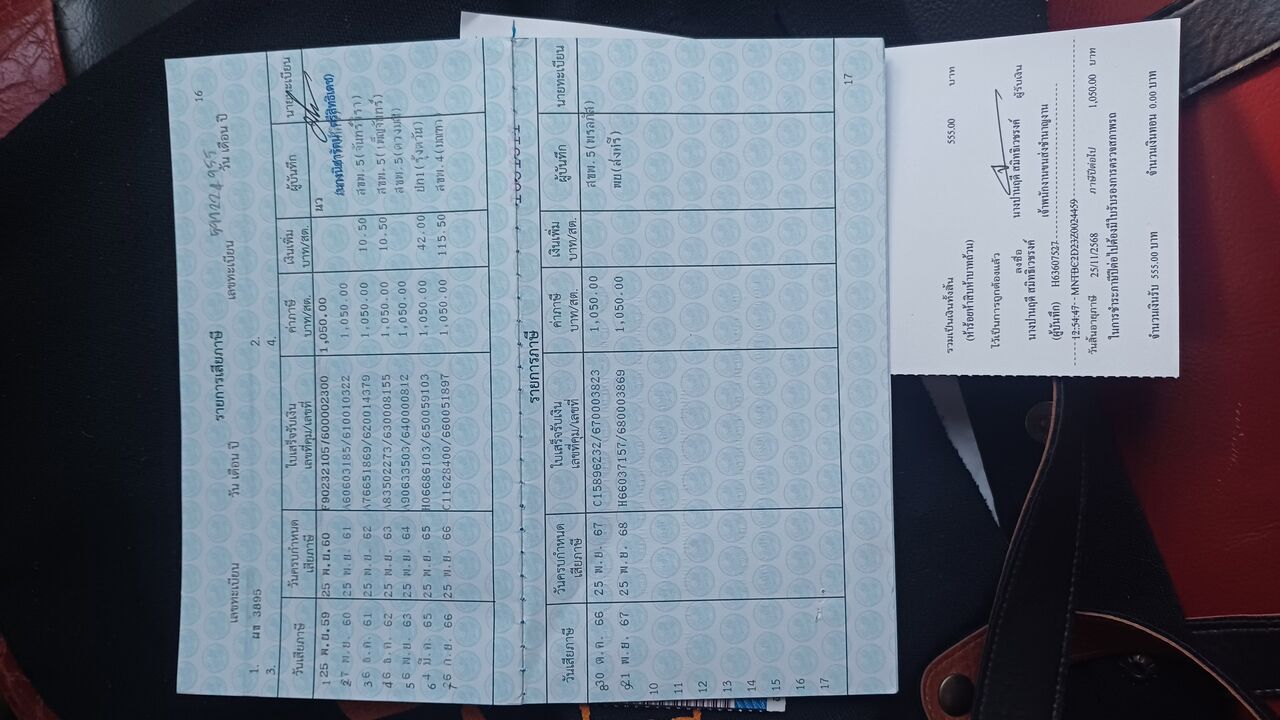 16
รายการเสียภาษี
เลขทะเบียน วัน เดือน ปี เลขทะเบียน วัน เดือน ปี
1. ผข 3895 2.
3. 4.
วันเสียภาษี วันครบกำหนดเสียภาษี ใบเสร็จรับเงินเลขที่คุม/เลขที่ ค่าภาษีบาท/สต. เงินเพิ่มบาท/สต. ผู้บันทึก นายทะเบียน
1 25 พ.ย.59 25 พ.ย.60 F90232105/600002300 1,050.00 นว
2 7 พ.ย. 60 25 พ.ย. 61 A60603185/610010322 1,050.00
3 6 ธ.ค. 61 25 พ.ย. 62 A76651869/620014379 1,050.00 10.50
4 6 ธ.ค. 62 25 พ.ย. 63 A83502273/630008155 1,050.00 10.50
5 6 พ.ย. 63 25 พ.ย. 64 A90633503/640000812 1,050.00 สขพ.5(ดวงมณี)
6 4 มี.ค. 65 25 พ.ย. 65 H06686103/650059103 1,050.00 42.00 ปก1(รุ้งตวัน)
7 26 ก.ย. 66 25 พ.ย. 66 C11628400/660051897 1,050.00 115.50
รายการภาษี
วันเสียภาษี วันครบกำหนดเสียภาษี ใบเสร็จรับเงินเลขที่คุม/เลขที่ ค่าภาษีบาท/สต. เงินเพิ่มบาท/สต. ผู้บันทึก นายทะเบียน
8 30 ต.ค. 66 25 พ.ย. 67 C15896232/670003823 1,050.00
9 21 พ.ย. 67 25 พ.ย. 68 H66037157/680003869 1,050.00 พย(ส่งศรี)
10
11
12
13
14
15
16
17
17
รวมเป็นเงินทั้งสิ้น 555.00 บาท
(ห้าร้อยห้าสิบห้าบาทถ้วน)
ไว้เป็นการถูกต้องแล้ว
ลงชื่อ นางปานฤดี สมิทธิเวชรงค์ ผู้รับเงิน
นางปานฤดี สมิทธิเวชรงค์ เจ้าพนักงานขนส่งชำนาญงาน
(ผู้บันทึก) H63607527
12:54:47 - MNTBC2D23Z0024459
วันสิ้นอายุภาษี 25/11/2568 ภาษีปีต่อไป 1,050.00 บาท
ในการชำระภาษีปีต่อไปต้องมีใบรับรองการตรวจสภาพรถ
จำนวนเงินรับ 555.00 บาท จำนวนเงินทอน 0.00 บาท